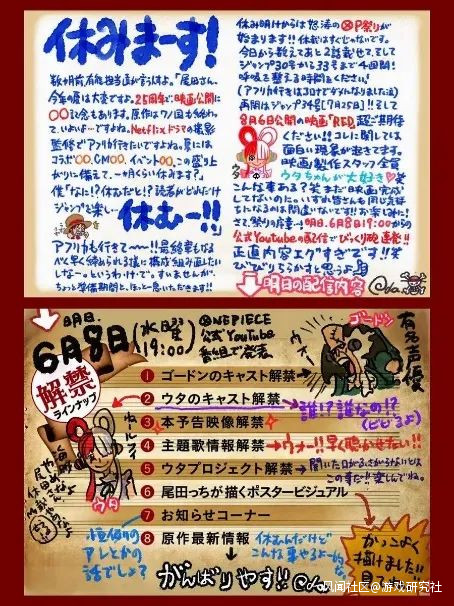 休みまーす!
数ヶ月前有能担当達が言うわけ。「尾田さん、
今年の夏は大変ですよ。25周年で映画公開に
〇〇に〇もあります。原作はワノ国も終わっ
て、いよいよ…ですよね。Netflixドラマの撮影
監修でアフリカ行きたいですよね。夏には
コラボ〇〇、CM〇〇、イベント〇〇、この盛り上
がりに備えて、一ヶ月くらい休みます?」
僕「なに!?休むだと!?読者がどんだけ
ジャンプを楽し―休むー!!」
アフリカも行きて〜〜!!最終章もなる
べく早く締められる様に構成組み直したい
しなーというわけで。すいませんが、
ちょっと準備期間と、ほっと一息いただきます!!
休み明けからは怒涛のOP祭りが
始まります!!休載はすぐじゃないです。
今日から数えてあと2話載せて、そして
ジャンプ30号から33号まで4週間!
呼吸を整える時間をください!
(アフリカ行きはコロナでダメになりました泣)
再開はジャンプ34号(7月25日)!!そして
8月6日公開の映画「RED」超ご期待
ください!!コレに関しては
面白い現象が起きてます。
映画製作スタッフ全員
ウタちゃんが大好き♡笑
こんな事ある?笑 まだ映画完成
してないのに。いずれ皆さんも同じ気持
ちになるのは間違いないです!!お楽しみに!
さて、祭りの序章→明日、6月8日19:00から
公式YouTubeの配信でびっくり砲連発!!
正直内容エグすぎです!!笑
びっくりちらかすと思うよ
明日の配信内容
Oda
明日、
6月8日(水曜19:00)
ONE PIECE
公式YouTube
番組で発表
ゴードン
有名声優
解禁
ラインナップ
ウオー
❶ ゴードンのキャスト解禁
❷ ウタのキャスト解禁
誰!?誰なの!?
(ビビるよ)
❸ 本予告映像解禁
❹ 主題歌情報解禁
ウォー!!早く聴かせたい!!
❺ ウタプロジェクト解禁
聞いた口がふさがらないとは
この事だ!!楽しんでね。
❻ 尾田っちが描くポスタービジュアル
❼ お知らせコーナー
❽ 原作最新情報
ウタ
恒例の
アレとかの
話でしょ?
休むんだけど
こんな事やるよー的な
かっこよく
描けました!!
見てね!!
がんばりやす!!Oda
@游戏研究社